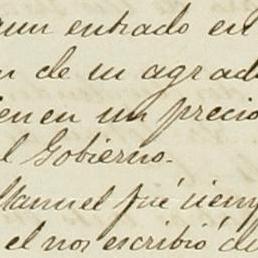 aun entrado en
n de su agrado
ienen un precio
l Gobierno.
Manuel fué siemp
el nos escribió de